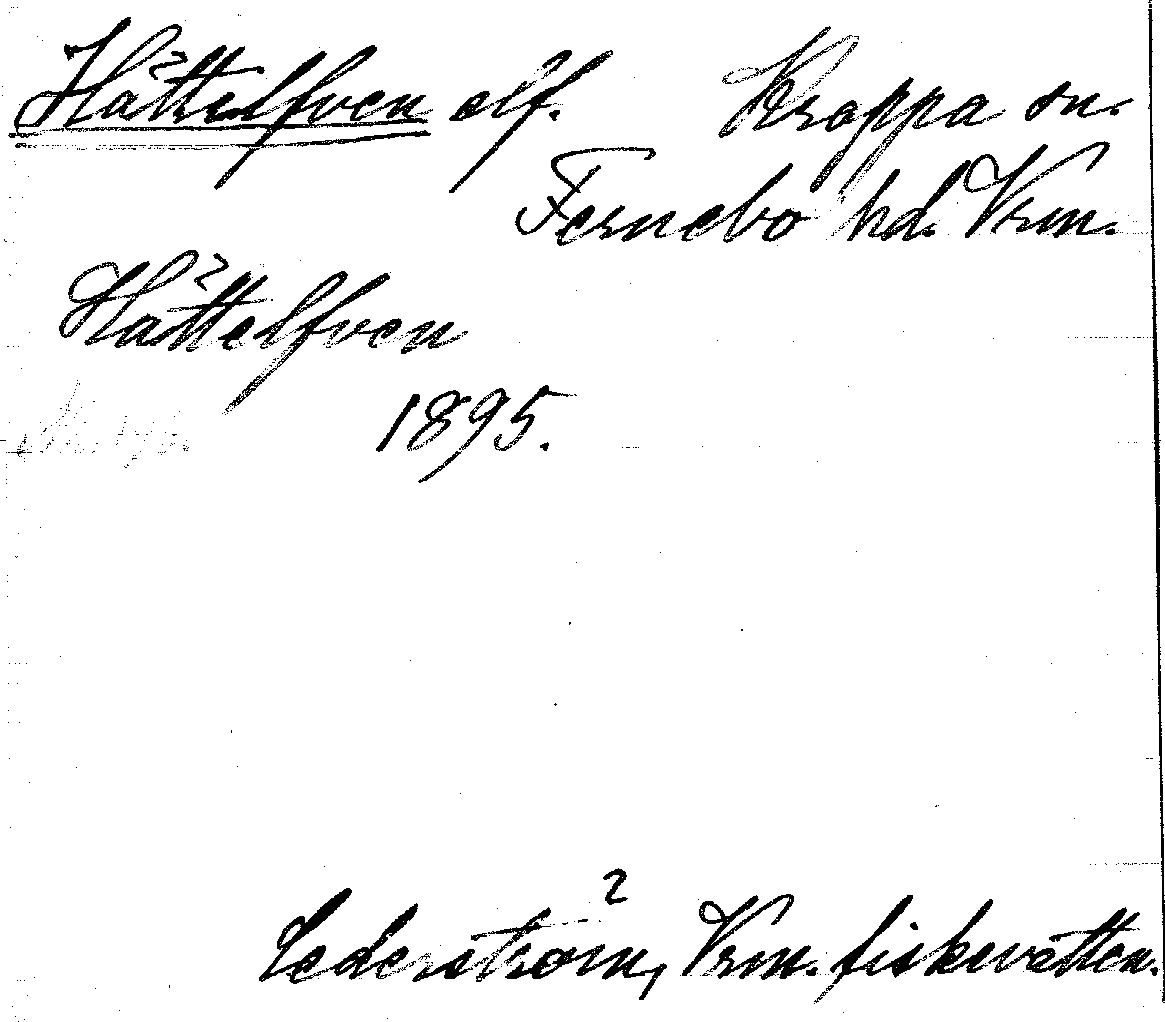 Hättelfven elf. Kroppa sn.
Fernebo hd. Vrm.
Hättelfven
1895.
2
Cederström, Vrm. fiskevatten.